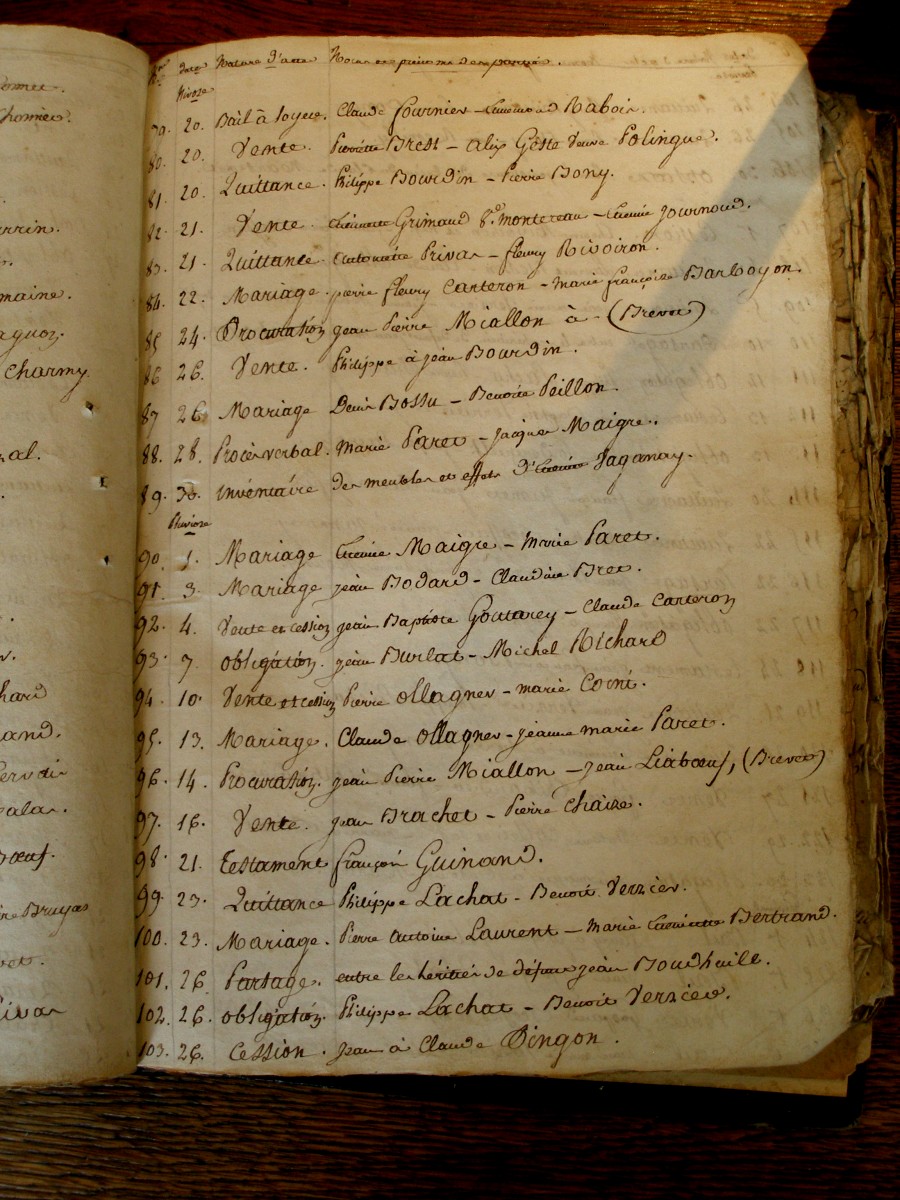 onnier.
Chomier.
rrin.
maine.
aguoz.
Charmy.
al.
hard
and.
ervoir
alas.
Bœuf.
ine Bruyas
vet.
rivas
N.ros dates Nature d'acte Noms et prénoms des parties.
Nivose
79. 20. Bail à loyer. Claude Fournier - Raboin
80. 20. Vente. Pierrette Brest - alix Geste Veuve Polingue.
81. 20. Quittance. Philippe Bourdin - Pierre Bony.
82. 21. Vente. Etiennette Grimaud montereau - Etienne Journoud.
83. 21. Quittance. Antoinette Privas - fleury Rivoiron.
84. 22. Mariage. pierre fleury Carteron - marie françoise Barboyon.
85 24. Procuration jean Pierre Miallon à - (Brevet)
86 26. Vente. Philippe à jean Bourdin.
87 26 Mariage Denis Bossu - Benoite Peillon.
88. 28. Procès verbal. Marie Paret - Jacques Maigre.
89. 30. inventaire des meubles et effets d'Etienne Jaganay.
Pluviose
90. 1. Mariage Etienne Maigre - Marie Paret.
91. 3. Mariage jean Bodard - Claudine Bret.
92. 4. Vente et cession jean Baptiste Goutarey - Claude Carteron
93. 7. obligation. jean Burlat - Michel Richard
94. 10. Vente et cession Pierre ollagner - marie Coint.
95. 13. Mariage. Claude ollagner - jeanne marie Paret.
96. 14. Procuration. jean Pierre Miallon - Jean Liabœuf, (Brevet)
97. 16. Vente. jean Brachet - Pierre Chaize.
98. 21. Testament françois Guinand.
99. 23. Quittance Philippe Lachat - Benoit Verzier.
100. 23. Mariage. Pierre Antoine Laurent - Marie Etiennette Bertrand.
101. 26. Partage. entre les héritiers de défunt jean Boudhuile.
102. 26. obligation. Philippe Lachat - Benoit Verzier.
103. 26. Cession. Jean à Claude Dingon.